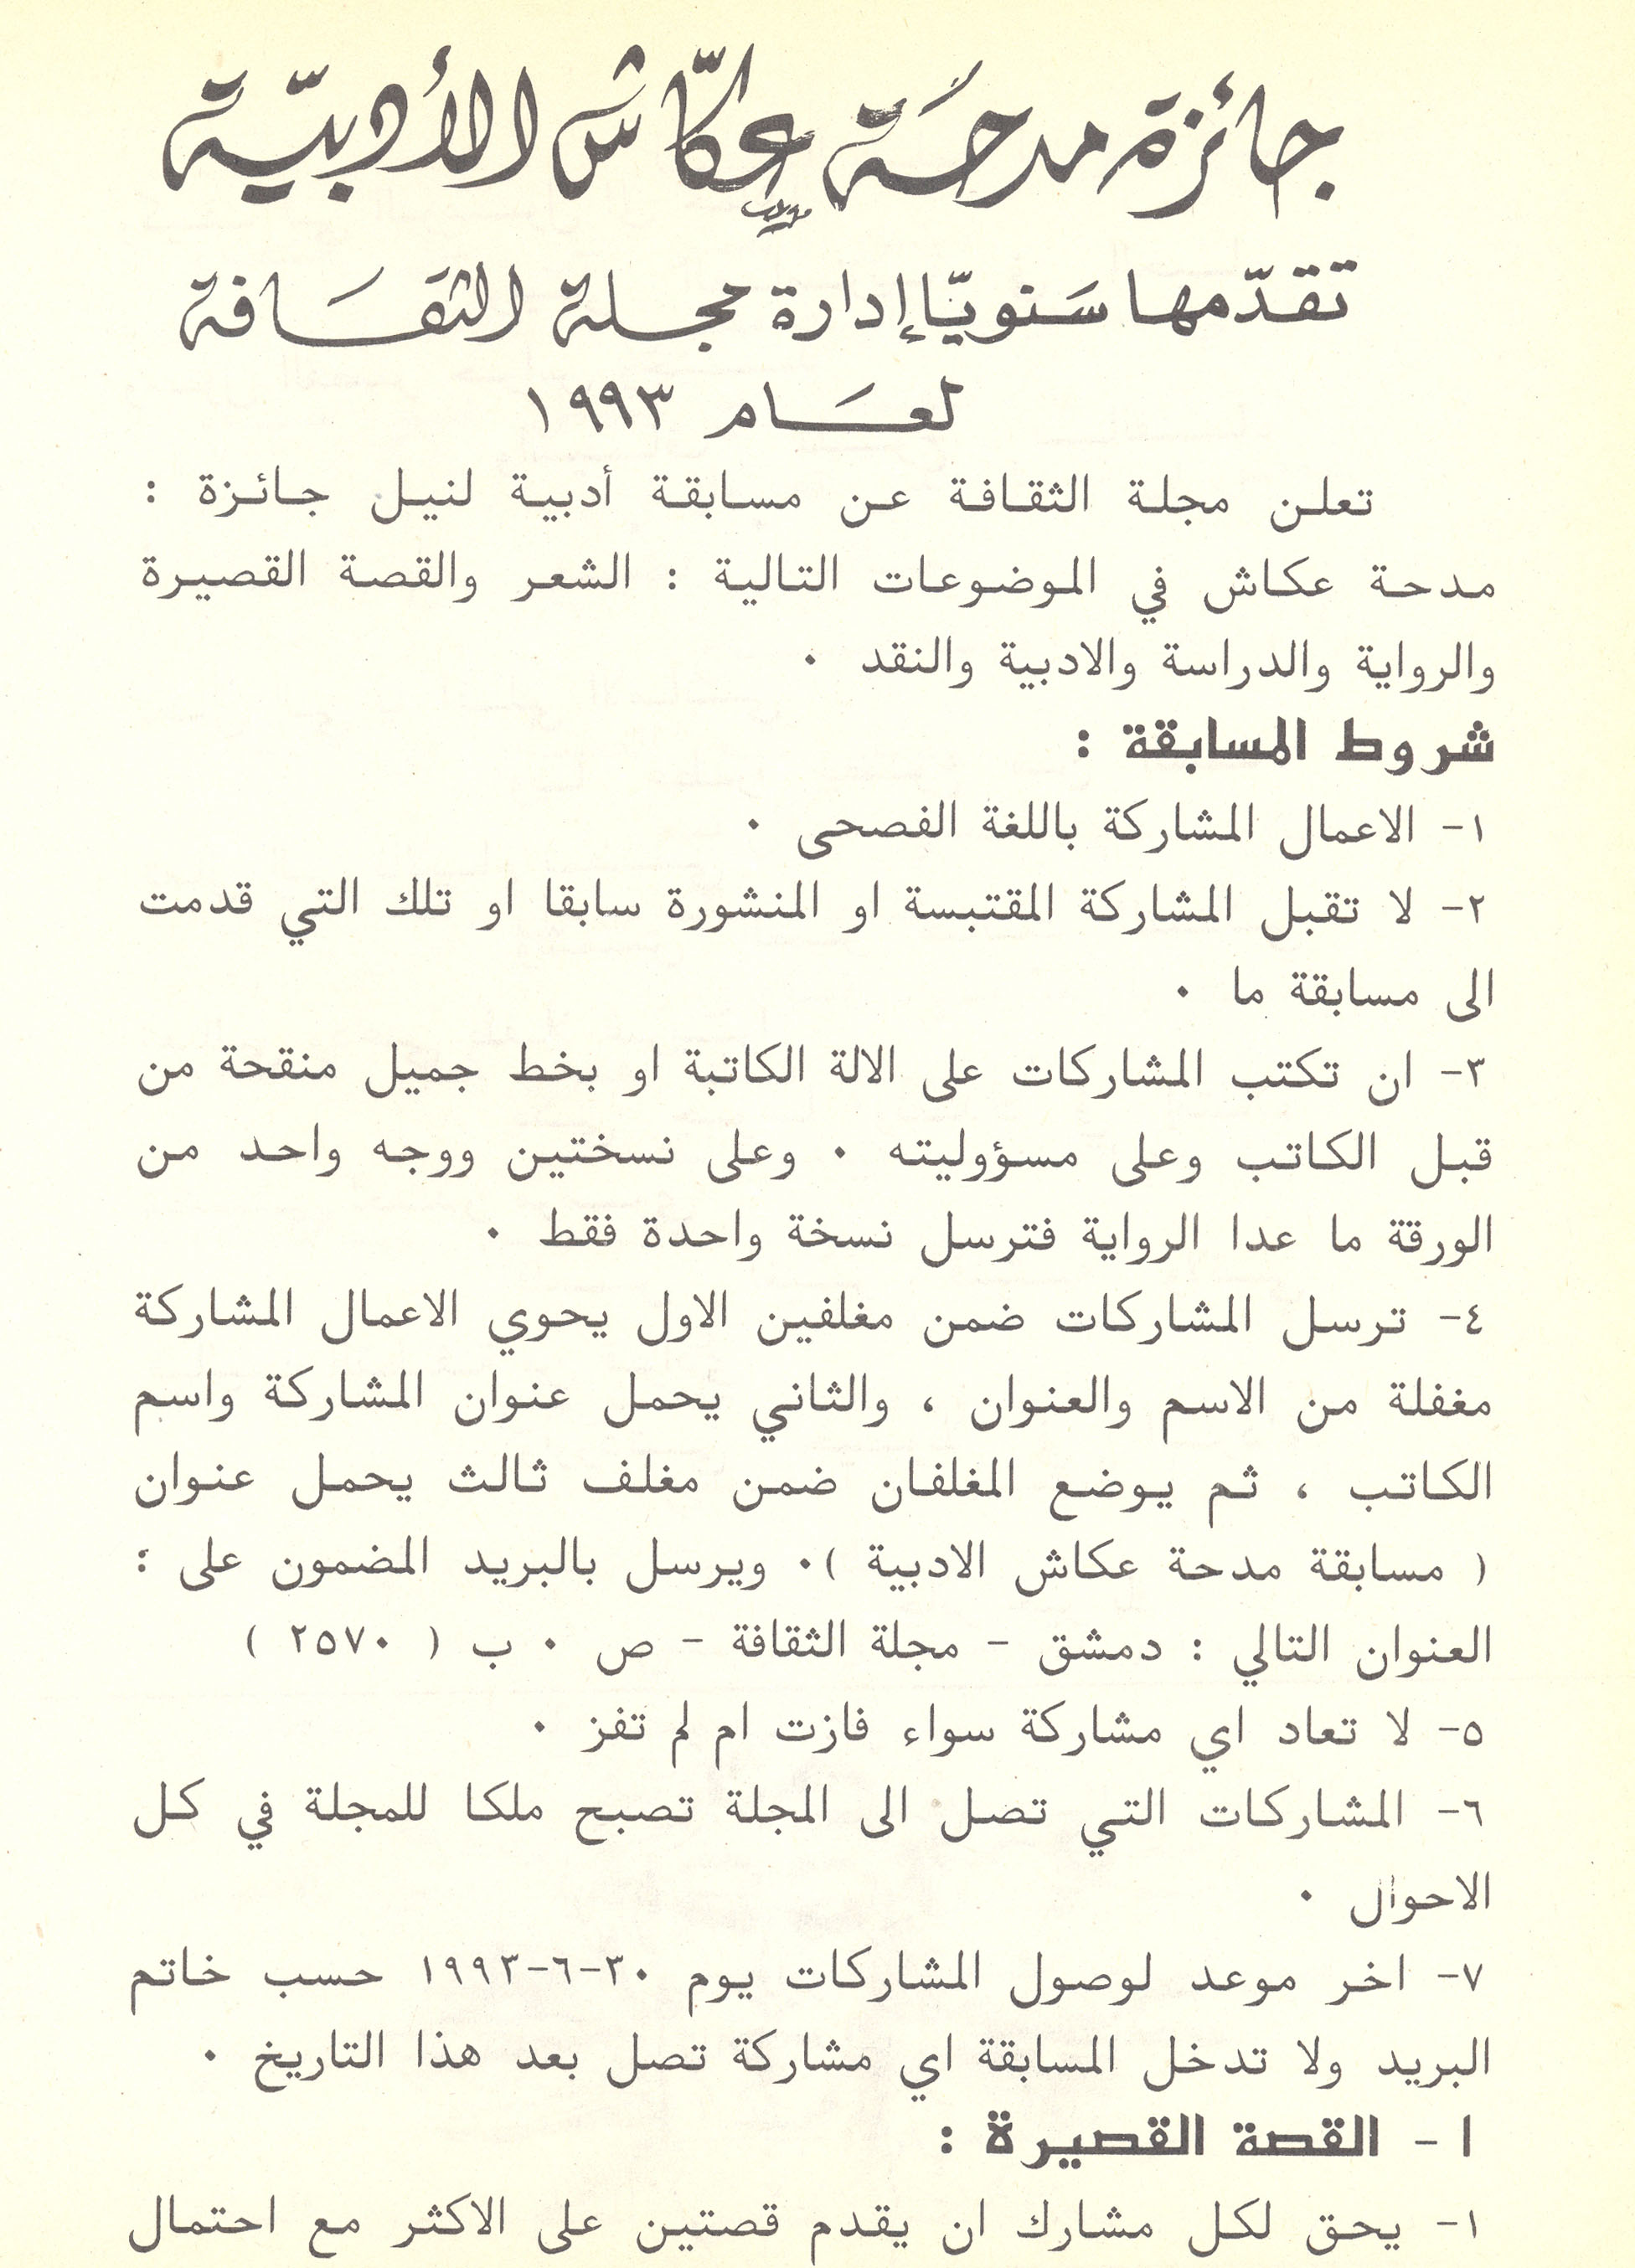 جائزة مدحة عكّاش الأدبيّة
تقدّمها سَنويّا إدارة مجلة الثقَافة
لعَام ١٩٩٣
تعلن مجلة الثقافة عن مسابقة أدبية لنيل جائزة :
مدحة عكاش في الموضوعات التالية : الشعر والقصة القصيرة
والرواية والدراسة والادبية والنقد ٠
شروط المسابقة :
١- الاعمال المشاركة باللغة الفصحى ٠
٢- لا تقبل المشاركة المقتبسة او المنشورة سابقا او تلك التي قدمت
الى مسابقة ما ٠
٣- ان تكتب المشاركات على الالة الكاتبة او بخط جميل منقحة من
قبل الكاتب وعلى مسؤوليته ٠ وعلى نسختين ووجه واحد من
الورقة ما عدا الرواية فترسل نسخة واحدة فقط ٠
٤- ترسل المشاركات ضمن مغلفين الاول يحوي الاعمال المشاركة
مغفلة من الاسم والعنوان ، والثاني يحمل عنوان المشاركة واسم
الكاتب ، ثم يوضع المغلفان ضمن مغلف ثالث يحمل عنوان
( مسابقة مدحة عكاش الادبية )٠ ويرسل بالبريد المضمون على :
العنوان التالي : دمشق - مجلة الثقافة - ص ٠ ب ( ٢٥٧٠ )
٥- لا تعاد اي مشاركة سواء فازت ام لم تفز ٠
٦- المشاركات التي تصل الى المجلة تصبح ملكا للمجلة في كل
الاحوال ٠
٧- اخر موعد لوصول المشاركات يوم ٣٠-٦-١٩٩٣ حسب خاتم
البريد ولا تدخل المسابقة اي مشاركة تصل بعد هذا التاريخ ٠
ا - القصة القصيرة :
١- يحق لكل مشارك ان يقدم قصتين على الاكثر مع احتمال